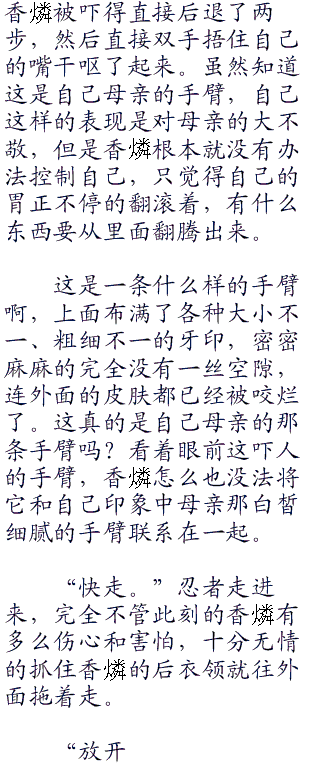 香燐被吓得直接后退了两
步，然后直接双手捂住自己
的嘴干呕了起来。虽然知道
这是自己母亲的手臂，自己
这样的表现是对母亲的大不
敬，但是香燐根本就没有办
法控制自己，只觉得自己的
胃正不停的翻滚着，有什么
东西要从里面翻腾出来。
这是一条什么样的手臂
啊，上面布满了各种大小不
一、粗细不一的牙印，密密
麻麻的完全没有一丝空隙，
连外面的皮肤都已经被咬烂
了。这真的是自己母亲的那
条手臂吗？看着眼前这吓人
的手臂，香燐怎么也没法将
它和自己印象中母亲那白皙
细腻的手臂联系在一起。
“快走。”忍者走进
来，完全不管此刻的香燐有
多么伤心和害怕，十分无情
的抓住香燐的后衣领就往外
面拖着走。
“放开